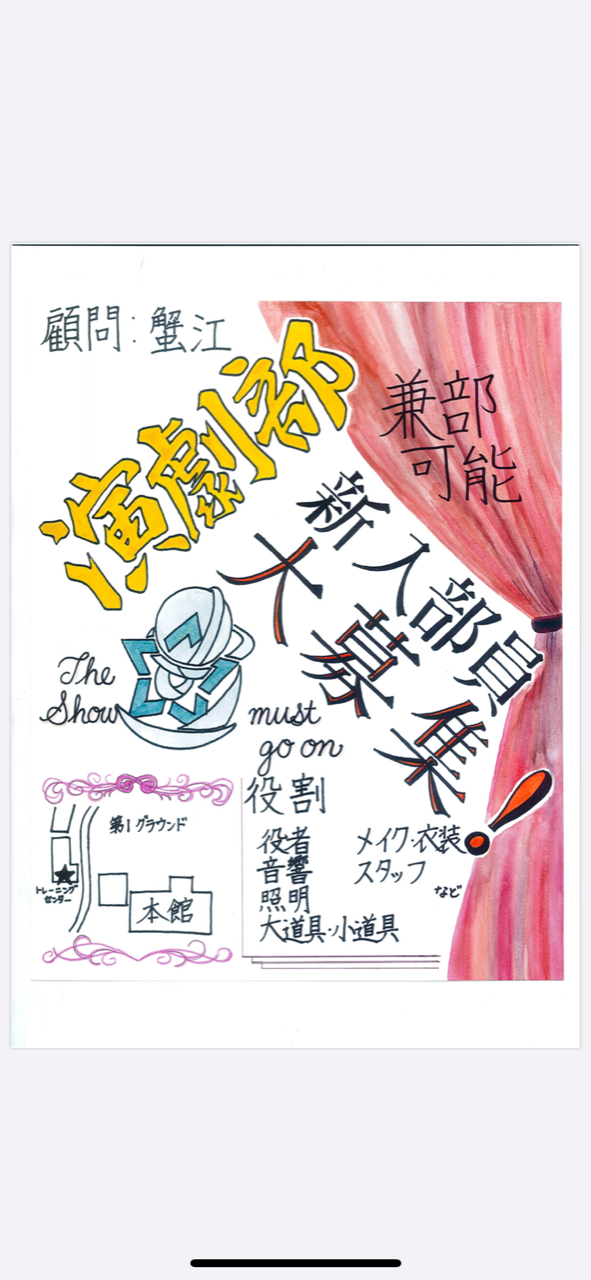 顧問:蟹江
演劇部
兼部
可能
新入部員
大募集!
The Show must go on
第1グラウンド
トレーニング
センター
本館
役割
役者
音響
照明
大道具・小道具
メイク・衣装
スタッフ
など